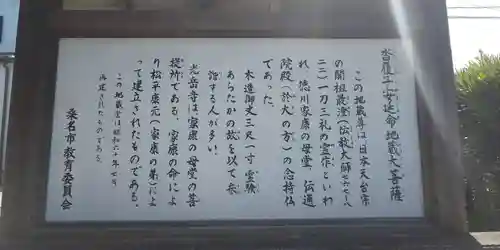 沓履子安延命地蔵大菩薩
この地蔵尊は日本天台宗
の開祖最澄(伝教大師七六七~八
二二)一刀三礼の霊作といわ
れ、徳川家康の母堂、伝通
院殿(於大の方)の念持仏
であった。
木造御丈三尺一寸霊験
あらたかの故を以て参
詣する人が多い。
光岳寺は家康の母堂の菩
提所である。家康の命によ
り松平康元(家康の弟)によ
って建立されたものである。
この地蔵堂は昭和六一年七月
再建されたものである。
桑名市教育委員会